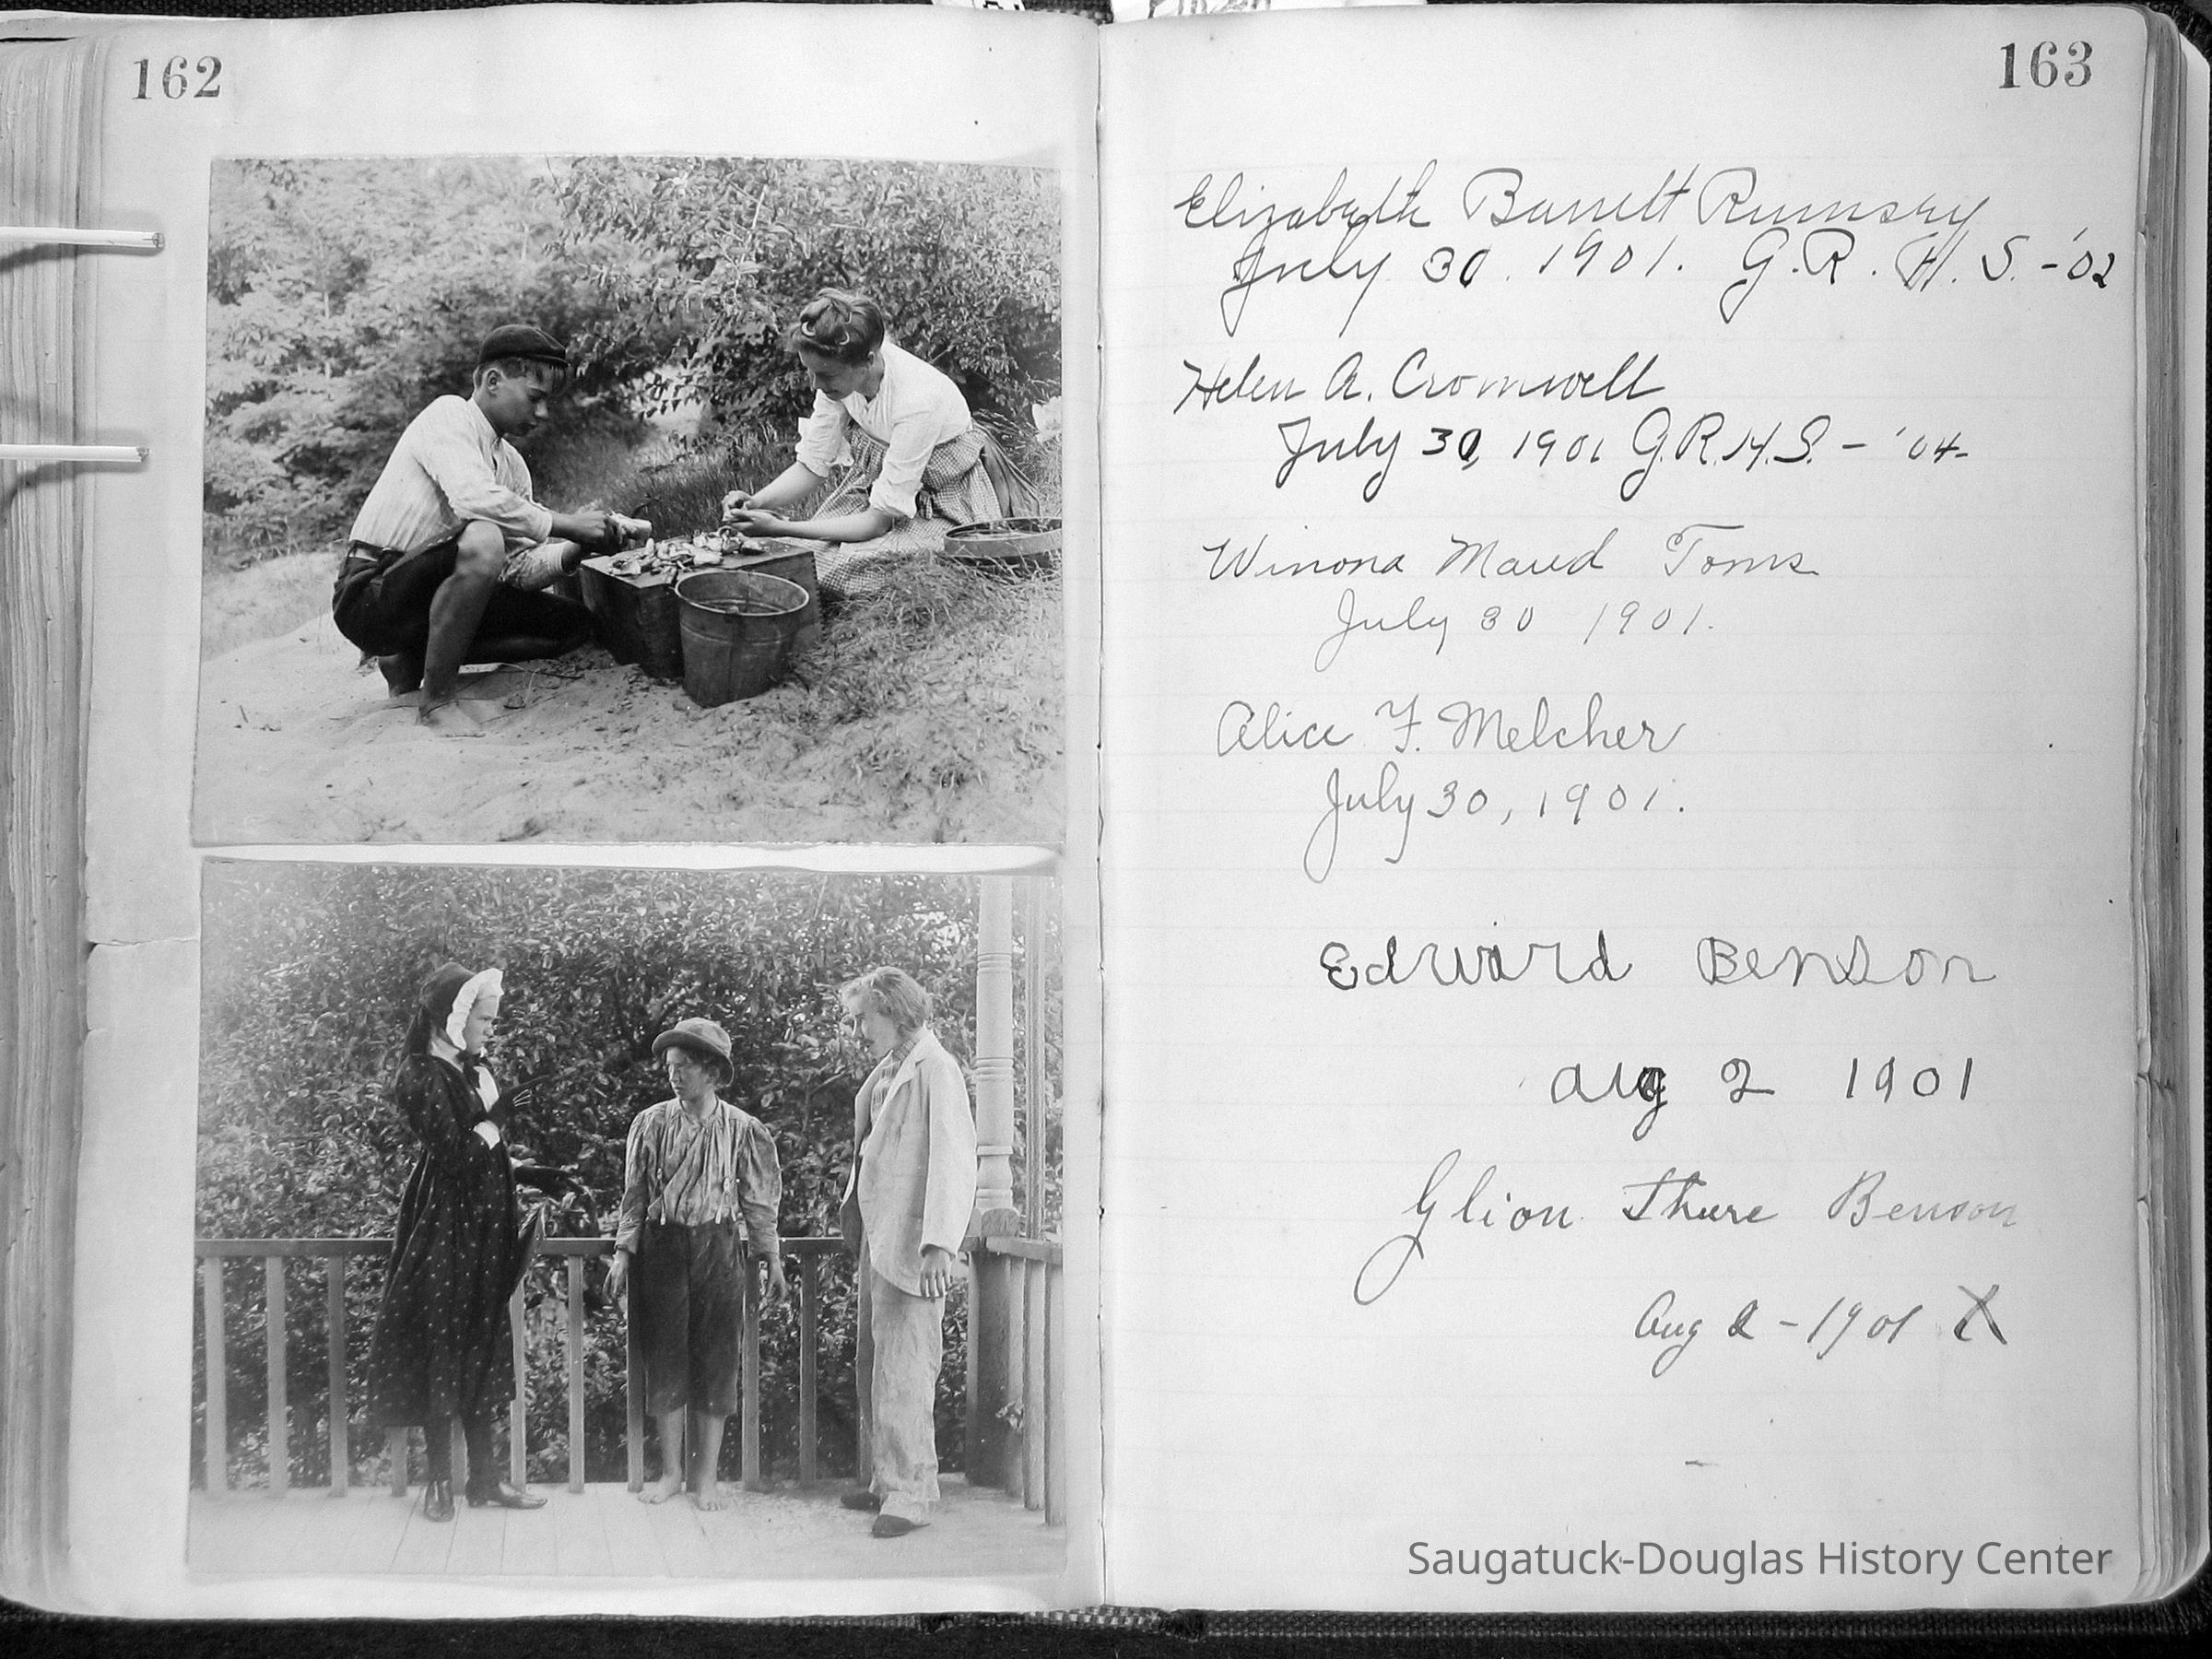 162
163
Elizabeth Barrett Rumsey
July 30. 1901. G. R. H. S. - '02
Helen A. Cromwell
July 30, 1901 G.R.H.S. - '04-
Winona Maud Toms
July 30 1901.
Alice F. Melcher
July 30, 1901.
Edward Benson
Aug 2 1901
Glion Thure Benson
Aug 2 - 1901 X
Saugatuck-Douglas History Center